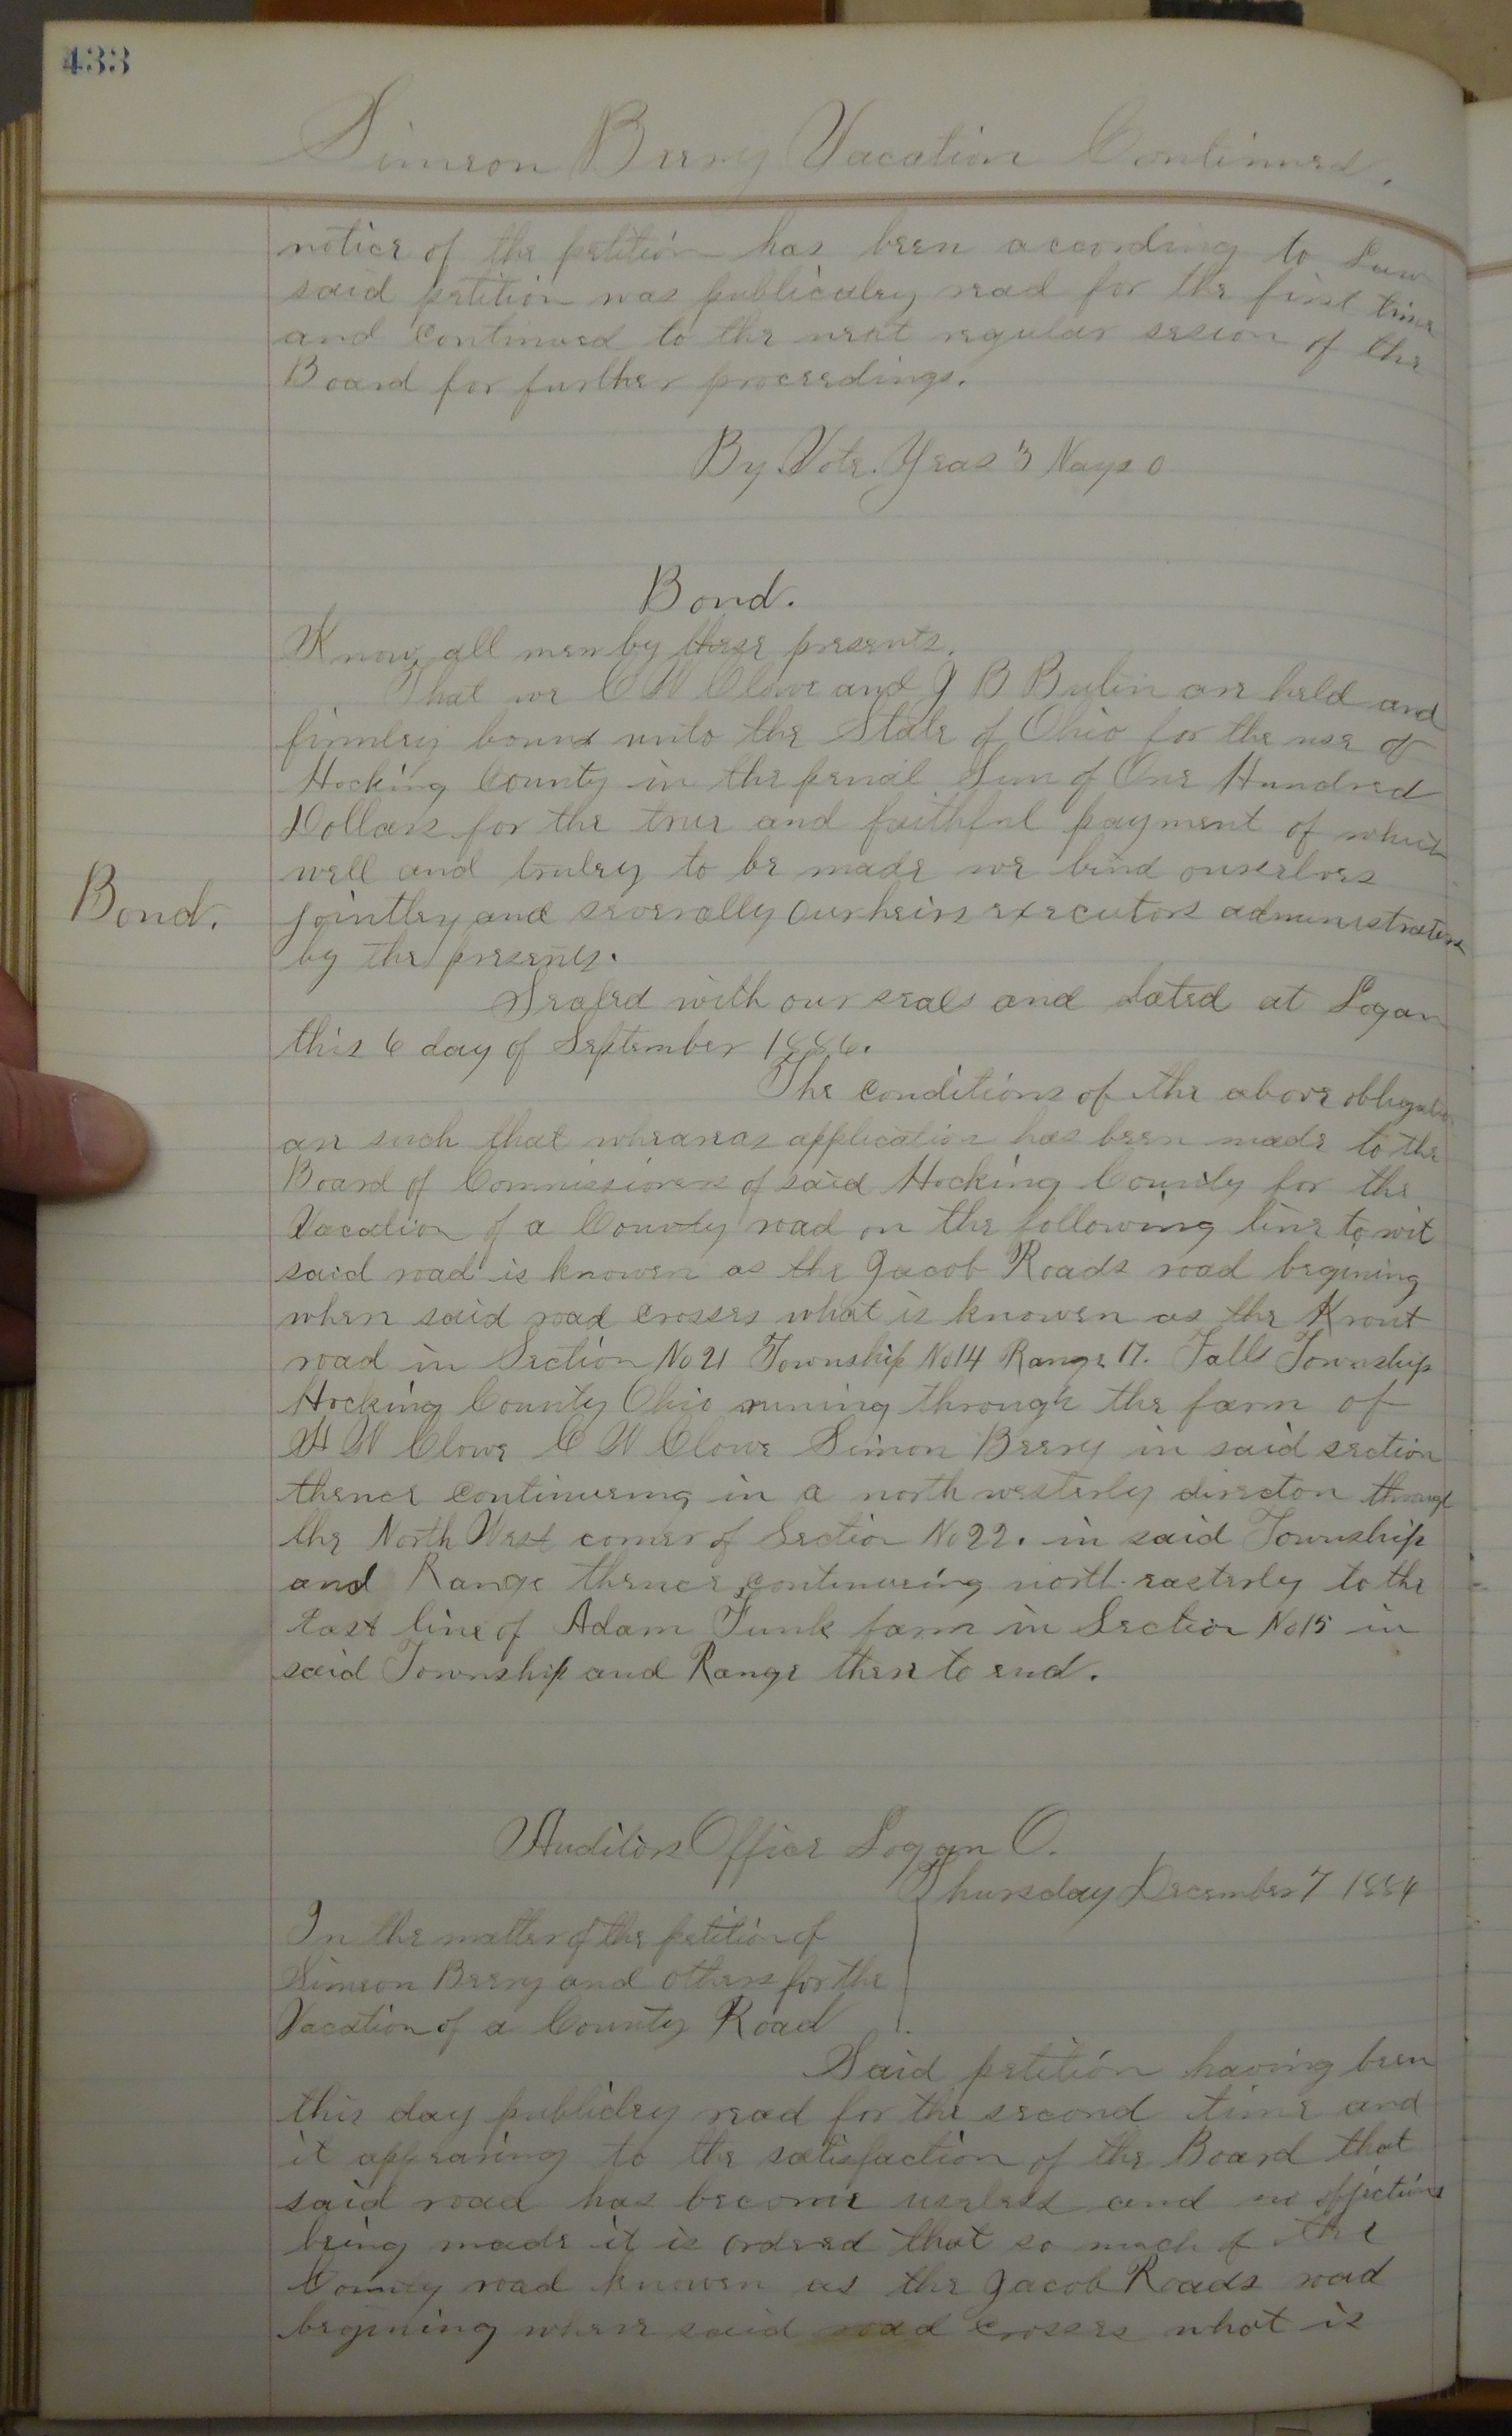 433
Simeon Beery Vacation Continued.
notice of the petition has been according to Law
said petition was publicaley read for the first time
and continued to the next regular sesion of the
Board for further proceedings.
By Vote. Yeas 3 Nays 0
Bond.
Know all men by these presents.
That we C W Clowe and J B Bulin are held and
firmley bound unto the State of Ohio for the use of
Hocking County in the penal Sum of One Hundred
Dollars for the true and faithful payment of which
well and truley to be made we bind ourselves
Bond.
jointley and severally our heirs executors administrators
by the presents.
Sealed with our seals and dated at Logan
this 6 day of September 1886.
The conditions of the above obligation
are such that wheareas application has been made to the
Board of Commissioners of said Hocking County for the
Vacation of a County road on the following line to wit
said road is knowen as the Jacob Roads road begining
where said road crosses what is knowen as the Krout
road in Section No 21 Township No 14 Range 17. Falls Township
Hocking County Ohio runing through the farm of
H W Clowe C W Clowe Simon Beery in said section
thence continueing in a north westerly directon through
the North West corner of Section No 22. in said Township
and Range thence continueing north-easterly to the
East line of Adam Funk farm in Section No 15 in
said Township and Range there to end.
Auditors Office Logan O.
Thursday December 7 1884
In the matter of the petition of
Simeon Beery and others for the
Vacation of a County Road
Said petition having been
this day publicley read for the second time and
it appearing to the satisfaction of the Board that
said road has become useless and no ofjections
being made it is ordered that so much of the
County road knowen as the Jacob Roads road
begining where said road crosses what is